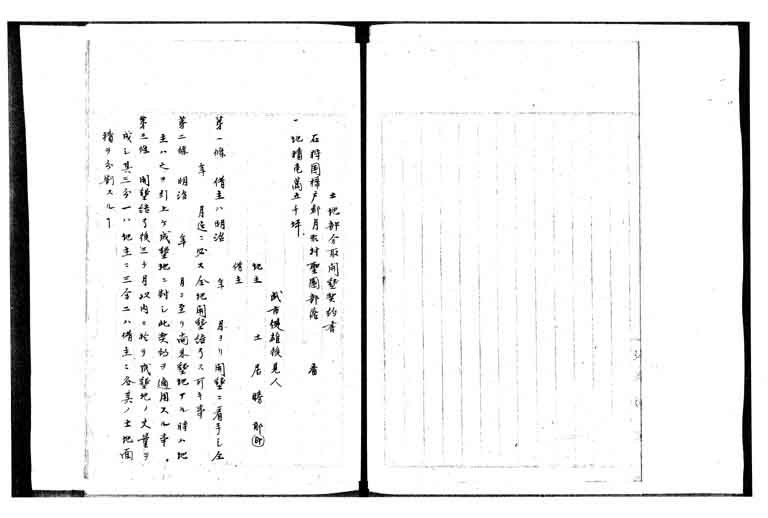 土地部分取開墾契約書
石狩国樺戸郡月形村聖園部落 番
一 地積壱萬五千坪
武市健雄後見人
地主 土居勝郎㊞
借主
第一條 借主ハ明治 年 月ヨリ開墾ニ着手シ全
年 月迄ニ必ス全地開墾語了ス可キ事
第二條 明治 年 月ニ至リ尚未墾地アル時ハ地
主ハ之ヲ引上ケ成墾地ニ対シ此契約ヲ適用スル事。
第三條 開墾語了後三ヶ月以内ニ於テ成墾地ノ丈量ヲ
成シ其三分一ハ地主ニ三分二ハ借主ニ各其ノ土地面
積ヲ分割スル